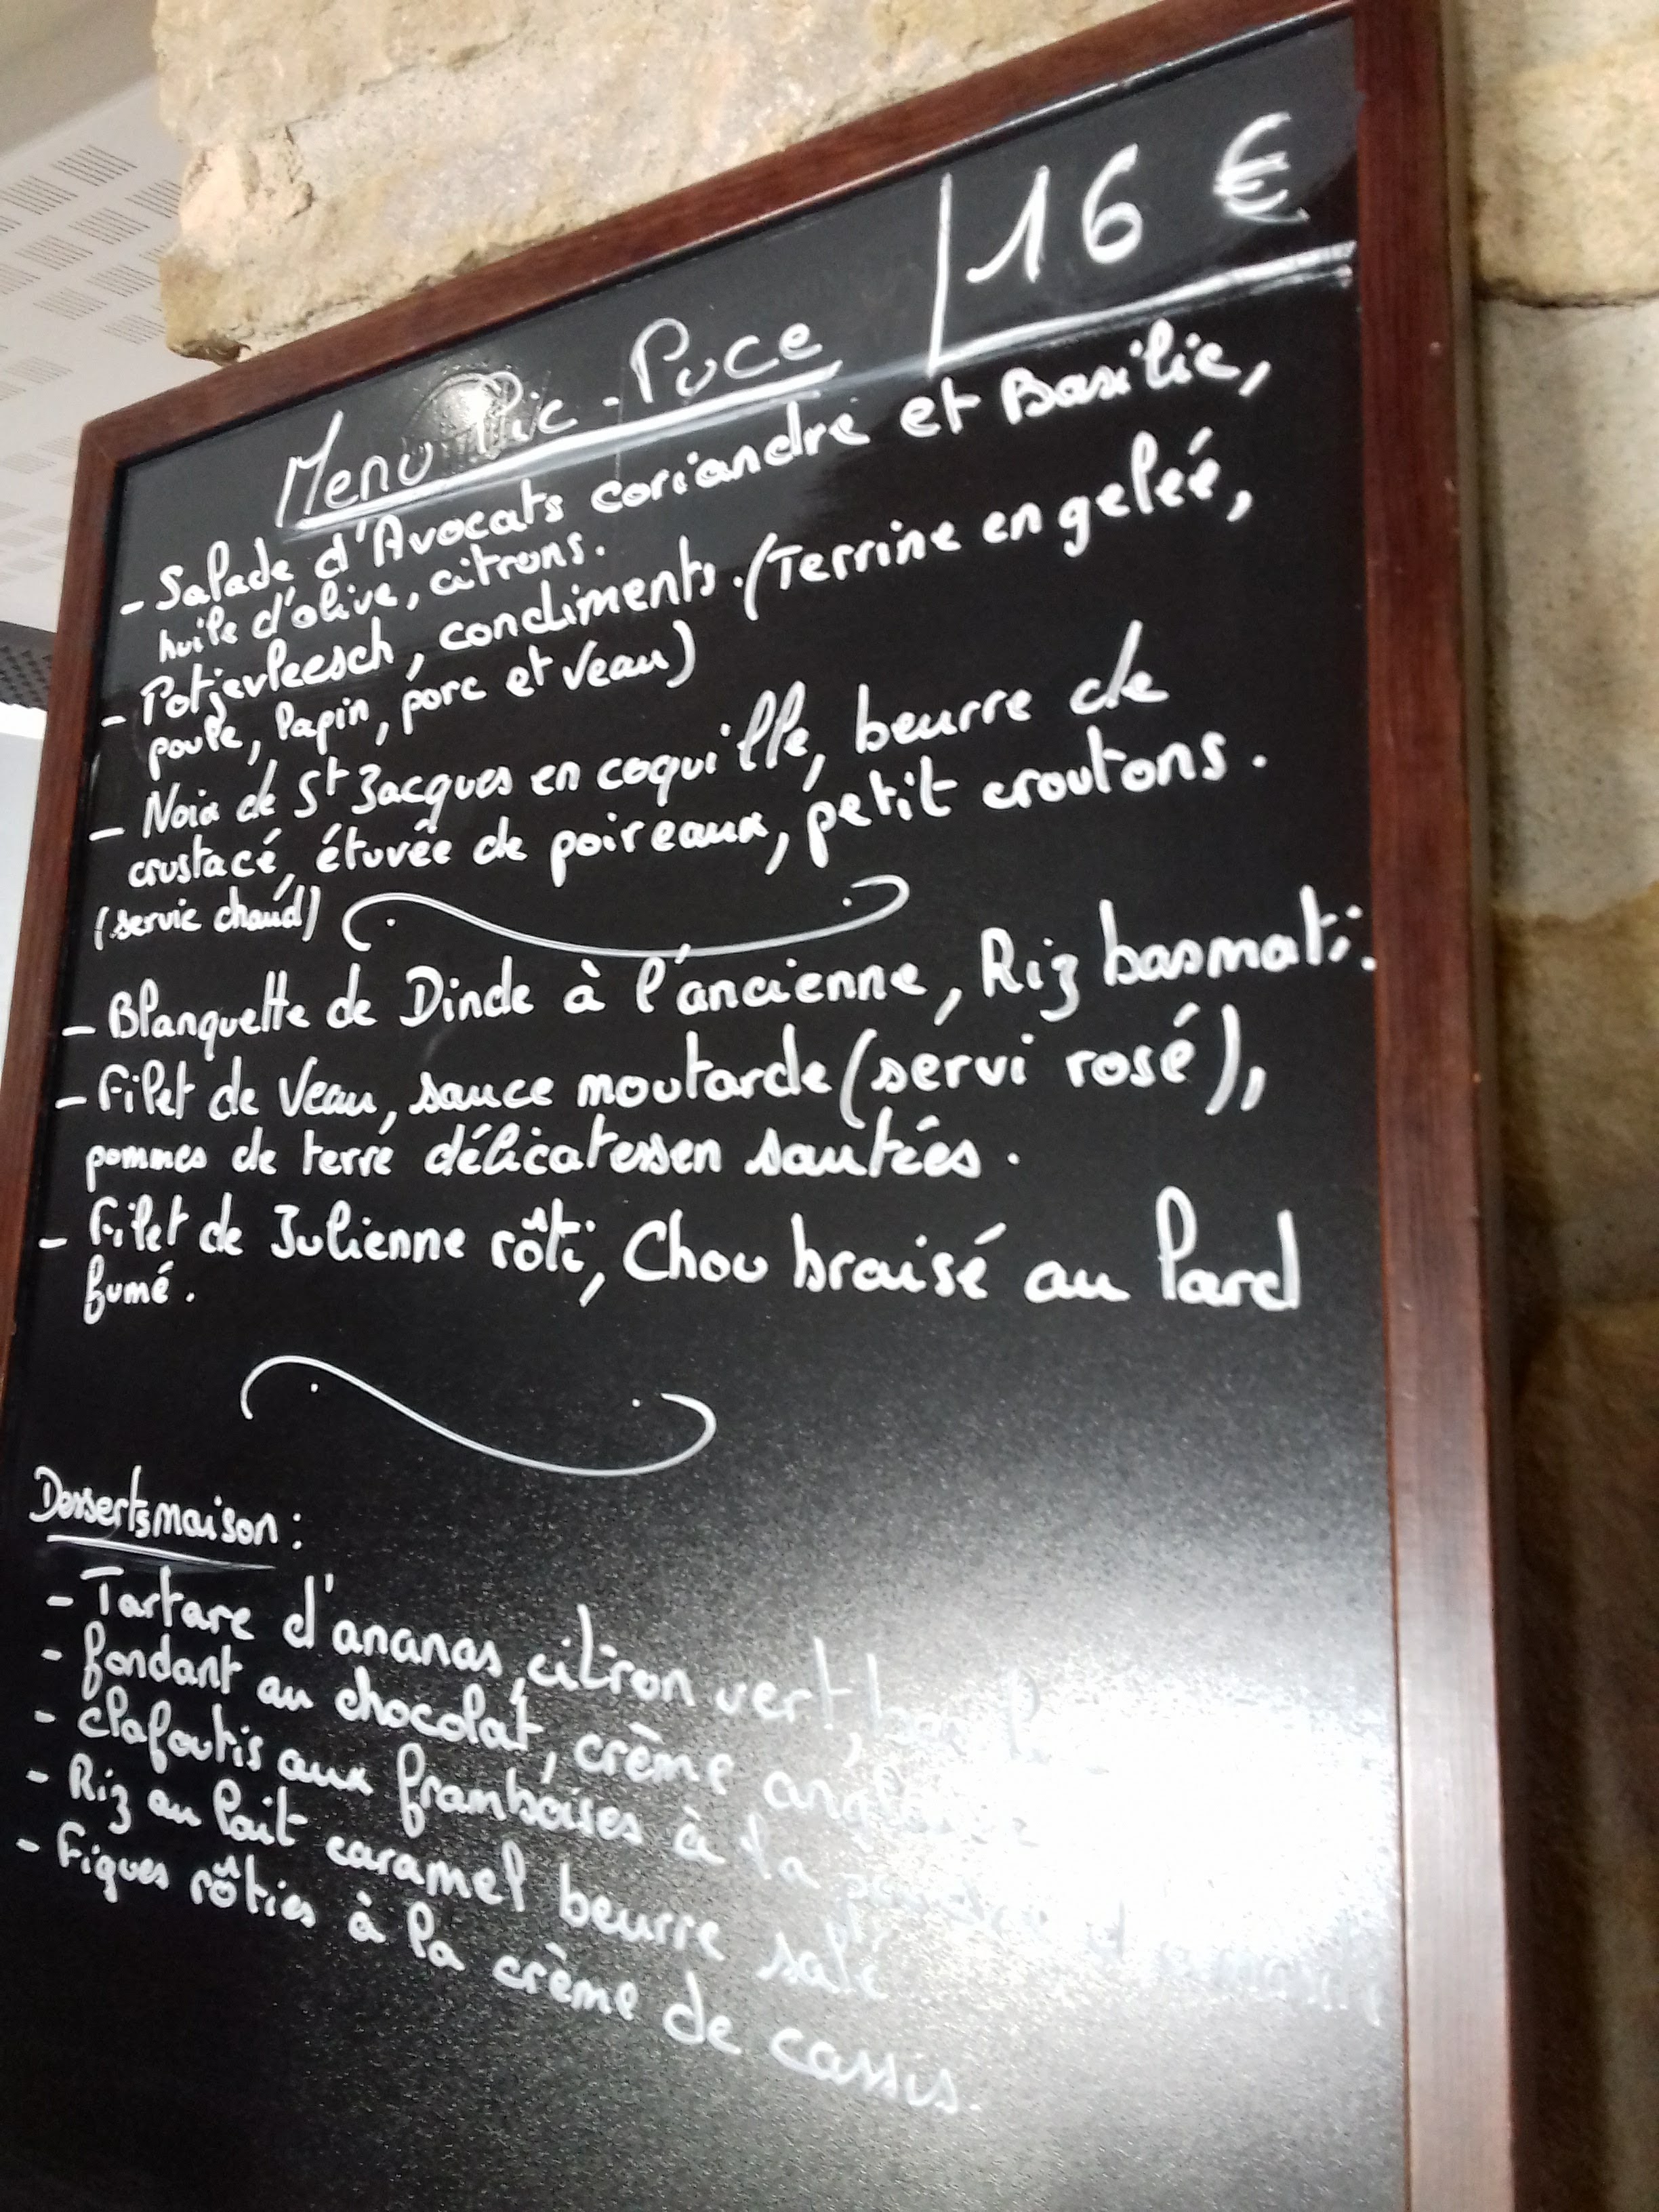 Menu Pic-Puce 16 €
- Salade d'Avocats coriandre et Basilic,
huile d'olive, citrons.
- Potjevleesch, condiments. (Terrine en gelée,
poule, lapin, porc et Veau)
- Noix de St Jacques en coquille, beurre de
crustacé, étuvée de poireaux, petit croutons.
(servie chaud)
- Blanquette de Dinde à l'ancienne, Riz basmati.
- Filet de Veau, sauce moutarde (servi rosé),
pommes de terre délicatessen sautées.
- Filet de Julienne rôti, Chou braisé au lard
fumé.
Desserts maison :
- Tartare d'ananas, citron vert,
- fondant au chocolat, crème anglaise
- Clafoutis aux framboises à la
- Riz au lait caramel beurre salé
- Figues rôties à la crème de cassis.